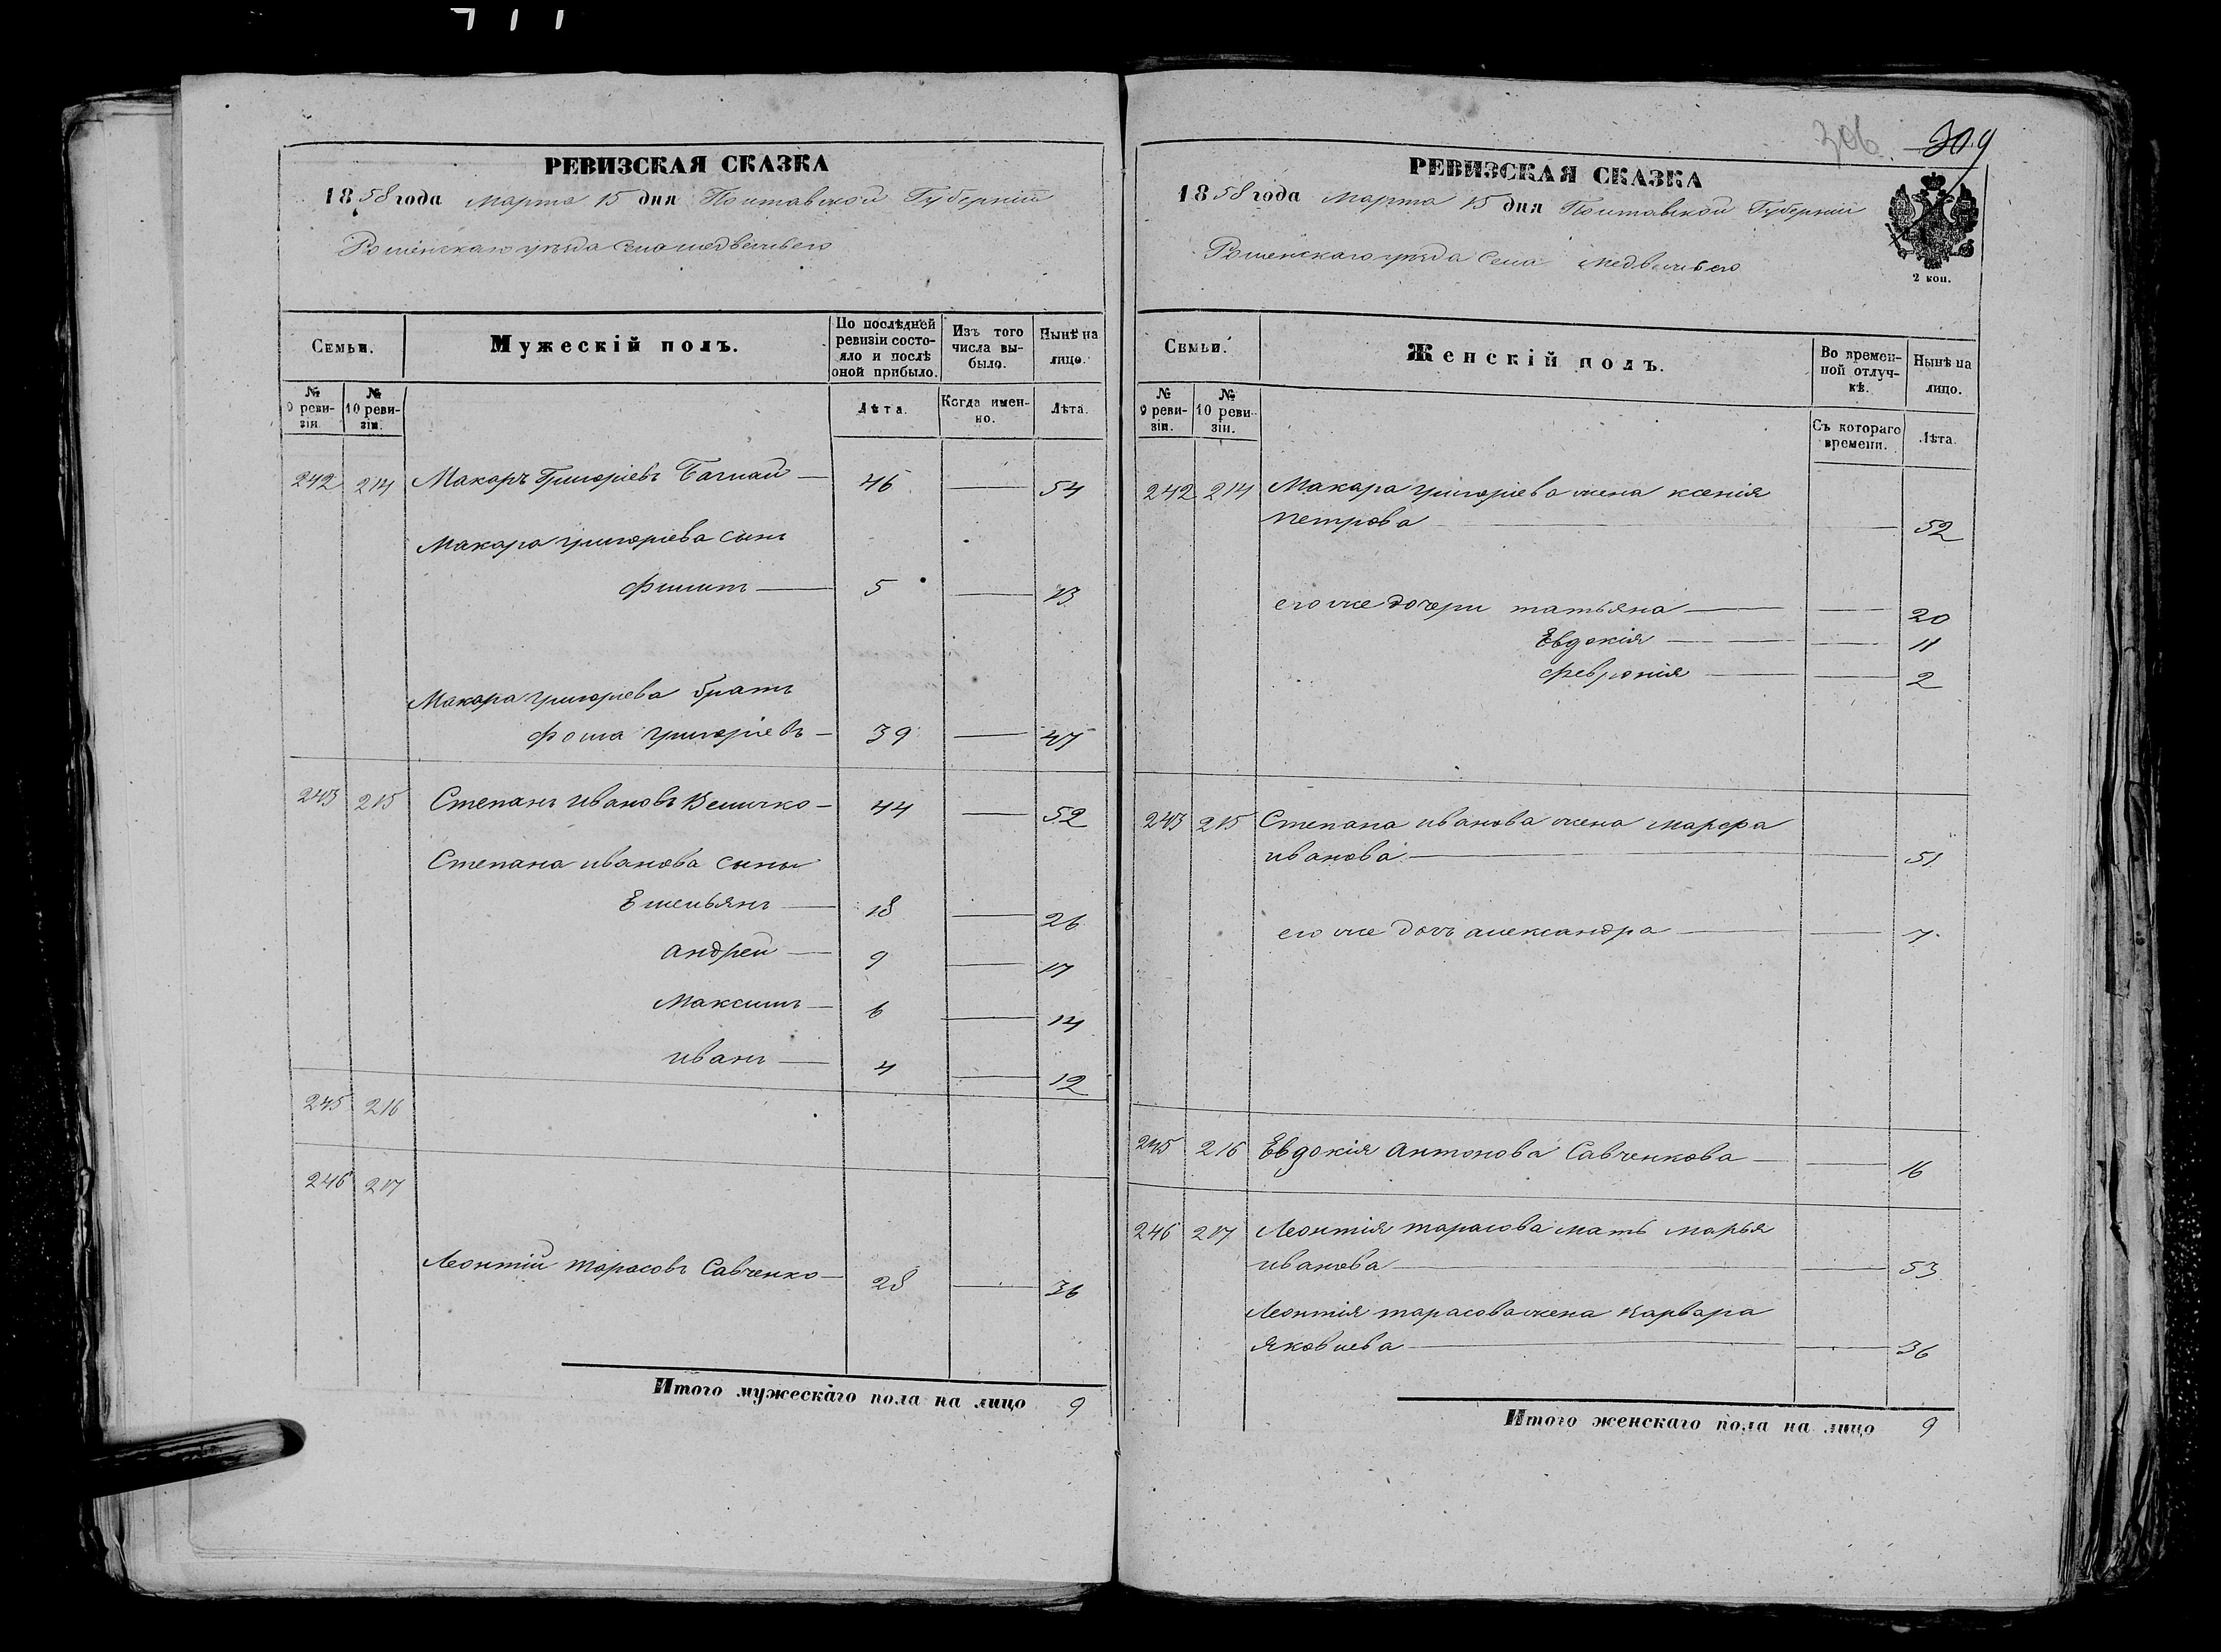 РЕВИЗСКАЯ СКАЗКА
1858 года Марта 15 дня Полтавской Губерніи
Роменскаго уезда Села Медвежьего
Семьи.
Мужескій полъ.
По послѣдней ревизіи состояло и послѣ оной прибыло.
Изъ того числа выбыло.
Нынѣ на лицо.
№ 9 ревизіи.
№ 10 ревизіи.
Лѣта.
Когда именно.
Лѣта.
242 214 Макаръ Григоріевъ — 46 — 54
Макара григоріева сынъ
филипъ — 5 — 13
Макара григоріева братъ
фома григоріевъ — 39 — 47
243 215 Степанъ ивановъ Величко — 44 — 52
Степана иванова сыны
Емельянъ — 18 — 26
андрей — 9 — 17
Максимъ — 6 — 14
иванъ — 4 — 12
245 216
246 217
Леонтій тарасовъ Савченко — 28 — 36
Итого мужескаго пола на лицо 9
306 309
РЕВИЗСКАЯ СКАЗКА
1858 года Марта 15 дня Полтавской Губерніи
Роменскаго уезда Села Медвежьего
2 коп.
Семьи.
Женскій полъ.
Во временной отлучкѣ.
Нынѣ на лицо.
№ 9 ревизіи.
№ 10 ревизіи.
Съ котораго времени.
Лѣта.
242 214 Макара григоріева жена ксенія
петрова — — 52
его же дочери татьяна — — 20
Евдокія — — 11
феvронія — — 2
243 215 Степана иванова жена марфа
иванова — — 51
его же дочь александра — — 7
245 216 Евдокія антонова Савченкова — — 16
246 217 Леонтія тарасова мать марья
иванова — — 53
Леонтія тарасова жена варвара
яковлева — — 36
Итого женскаго пола на лицо 9